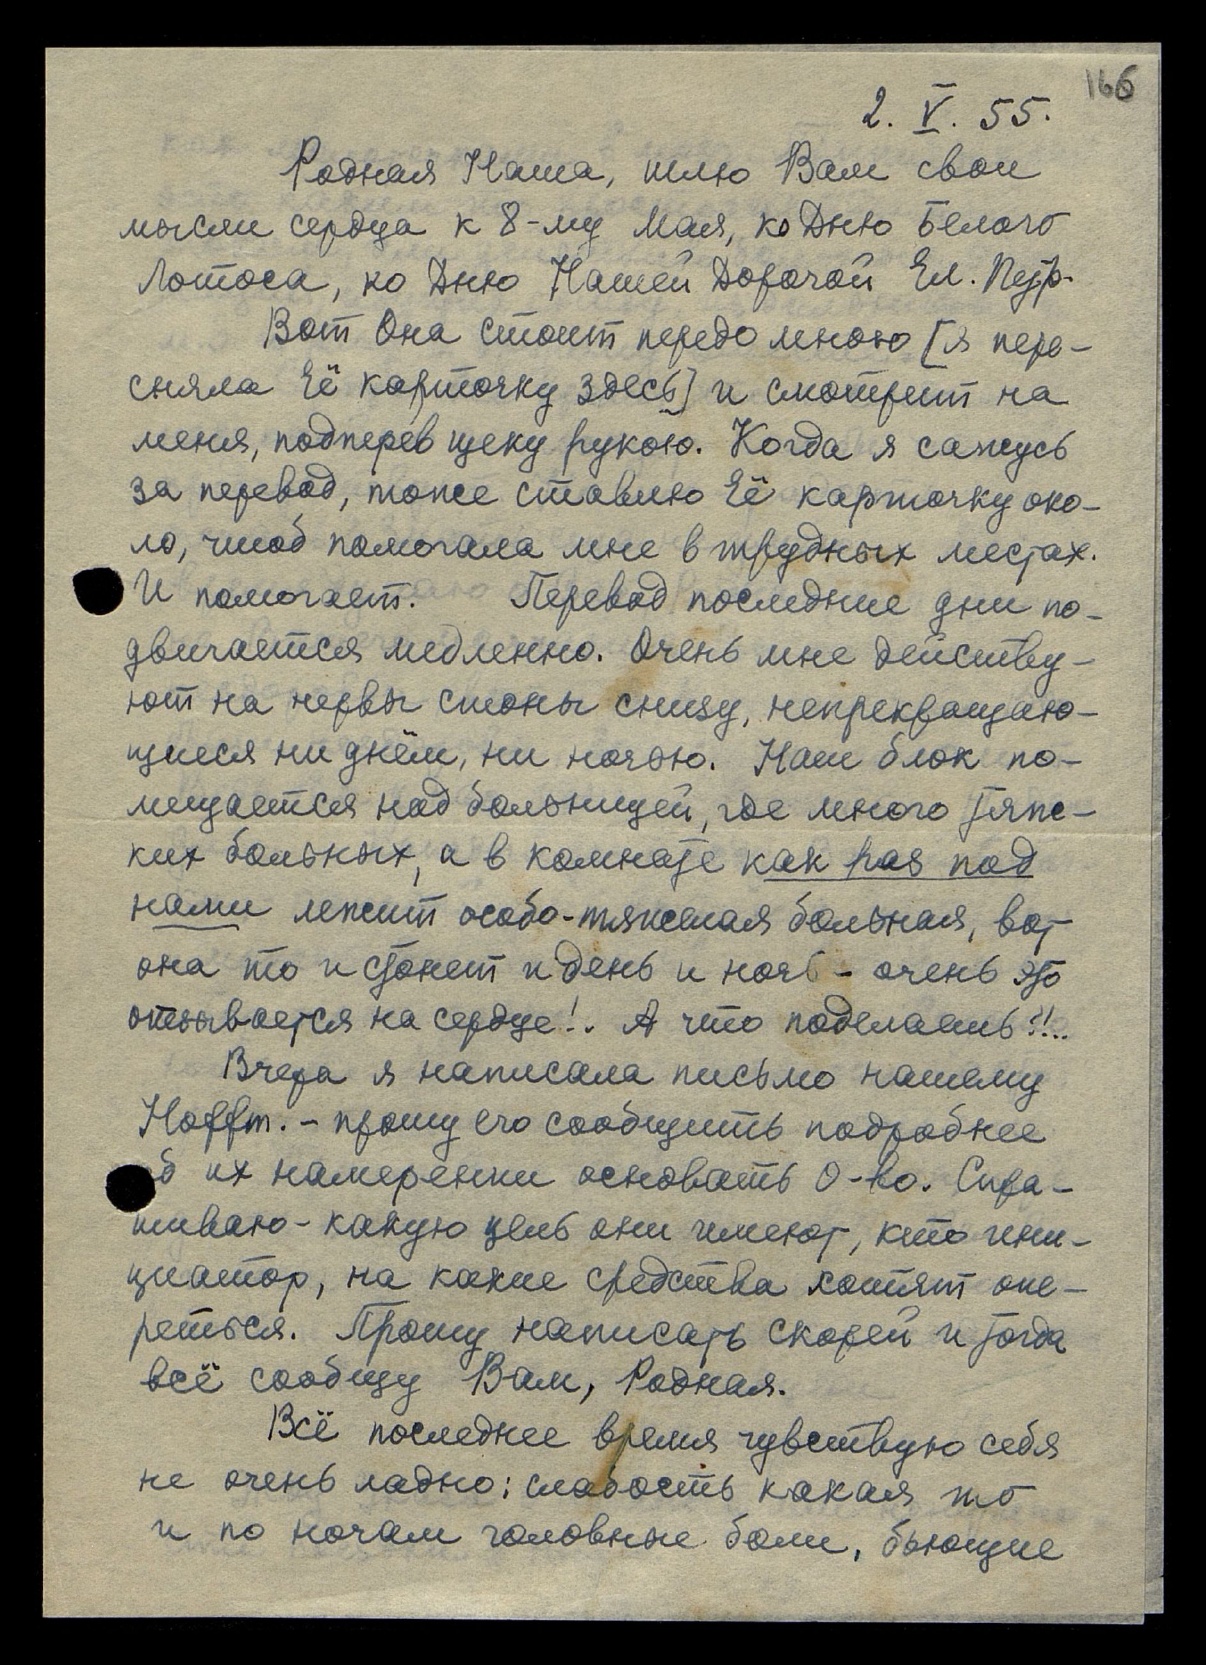 166
2. V. 55.
Родная Наша, шлю Вам свои
мысли сердца к 8-му Мая, ко Дню Белого
Лотоса, ко Дню Нашей Дорогой Ел. Петр.
Вот Она стоит передо мною [я пере-
сняла Её карточку здесь] и смотрит на
меня, подперев щеку рукою. Когда я сажусь
за перевод, тоже ставлю Её карточку око-
ло, чтоб помогала мне в трудных местах.
И помогает. Перевод последние дни по-
двигается медленно. Очень мне действу-
ют на нервы стоны снизу, непрекращаю-
щиеся ни днём, ни ночью. Наш блок по-
мещается над больницей, где много тяж-
ких больных, а в комнате как раз под
нами лежит особо-тяжелая больная, вот
она то и стонет и день и ночь - очень это
отзывается на сердце!. А что поделаешь!!..
Вчера я написала письмо нашему
Hoffm. - прошу его сообщить подробнее
об их намерении основать О-во. Спра-
шиваю - какую цель они имеют, кто ини-
циатор, на какие средства хотят опе-
реться. Прошу написать скорей и тогда
всё сообщу Вам, Родная.
Всё последнее время чувствую себя
не очень ладно: слабость какая то
и по ночам головные боли, бьющие